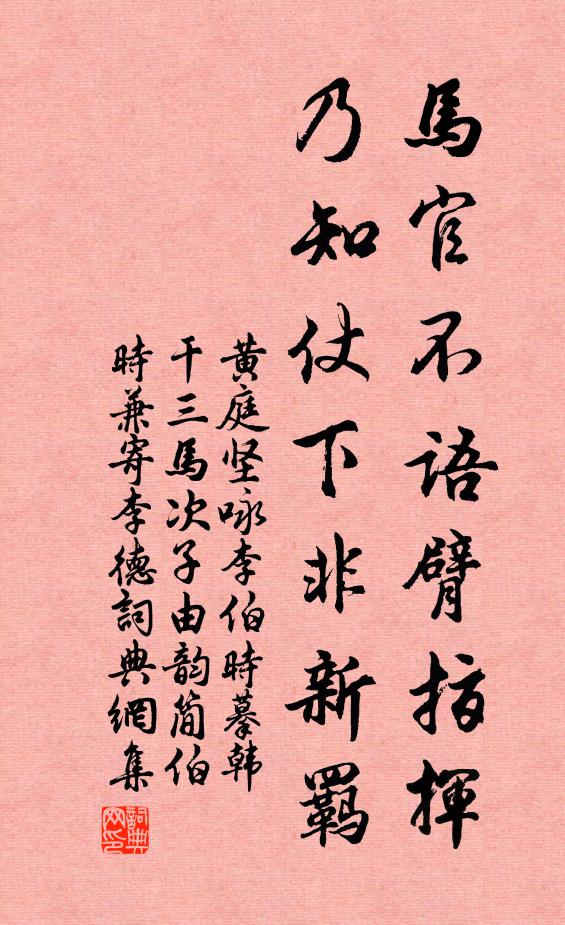 馬官不語臂指揮
乃知仗下非新羈
黄庭坚咏李伯時摹韩
干三馬次子由韵简伯
時兼寄李德詞典網集
詞典
网印